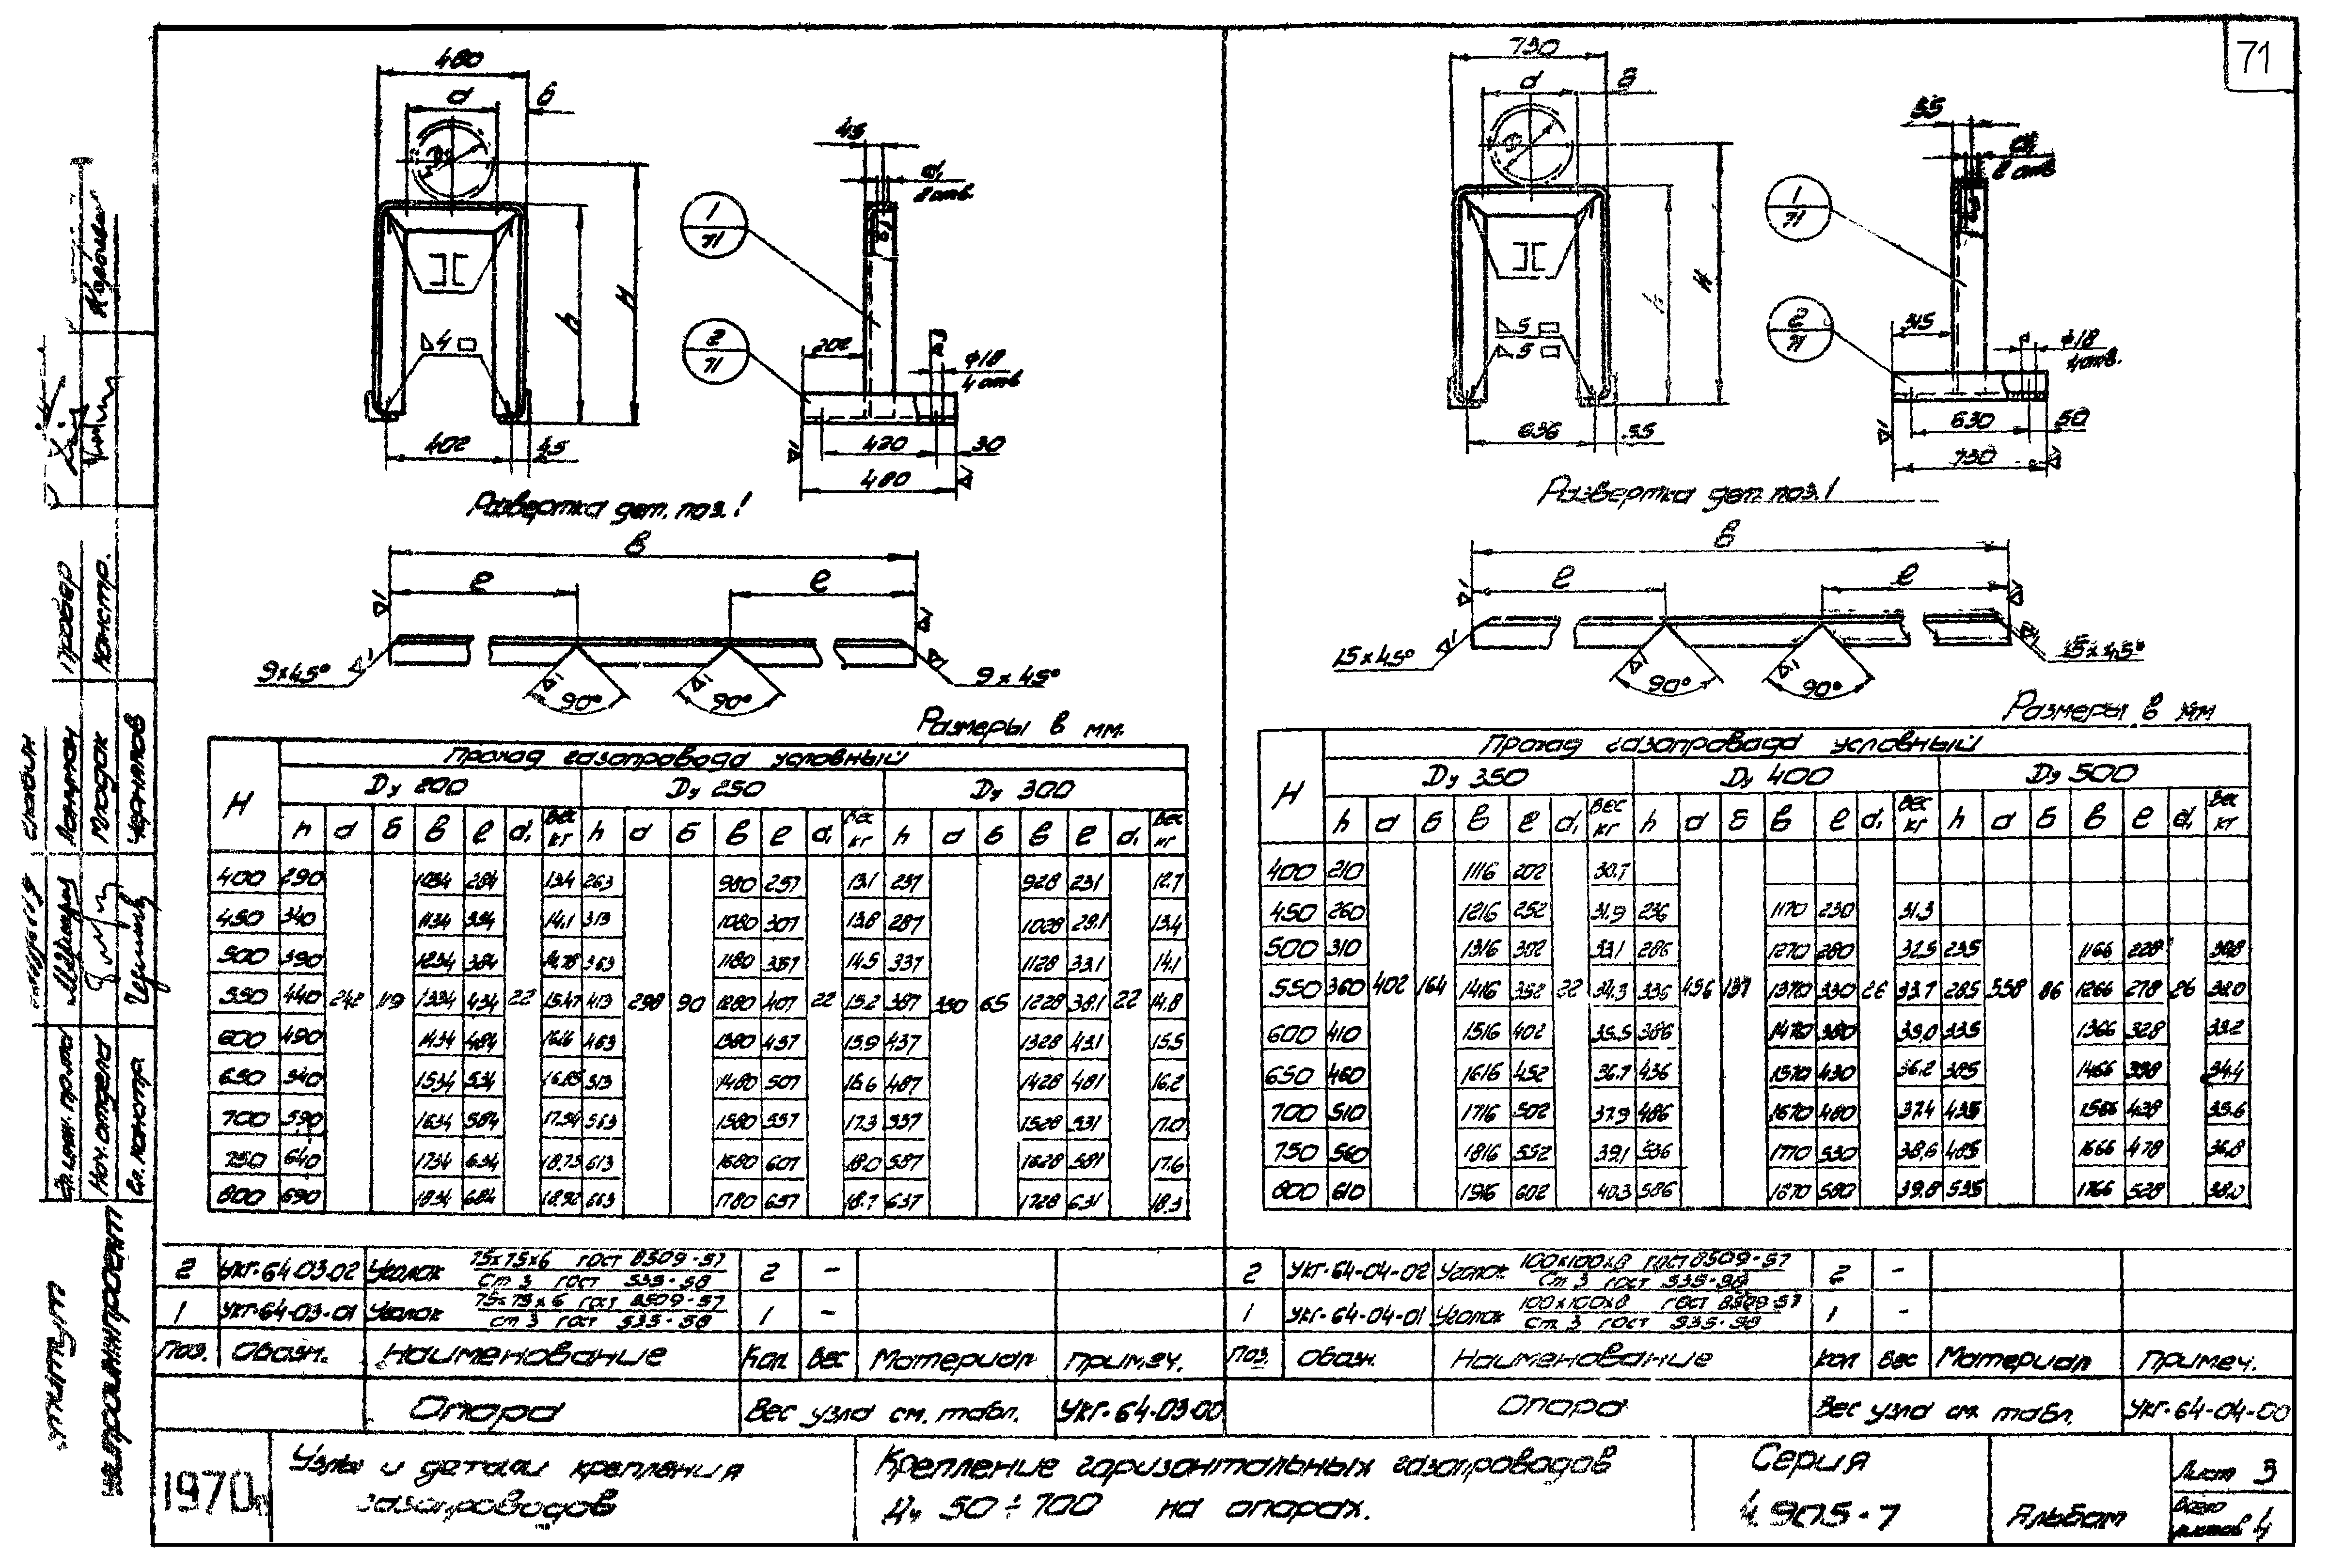 71
480
а
б
45
d₁
2 отв.
h
H
1
71
2
71
202
ф18
4 отв.
402
45
420
30
480
4
Развертка дет. поз. 1
в
е
е
9×45°
90°
90°
9×45°
Размеры в мм.
730
а
б
55
2 отв.
h
H
1
71
2
71
315
ф18
4 отв.
5
5
636
55
630
50
730
Развертка дет. поз. 1
в
е
е
15×45°
90°
90°
15×45°
Размеры в мм
H
Проход газопровода условный
Ду 200 Ду 250 Ду 300
h а б в е d₁ Вес кг h а б в е d₁ Вес кг h а б в е d₁ Вес кг
400 290 1034 284 13.4 263 980 257 13.1 237 928 231 12.7
450 340 1134 334 14.1 313 1080 307 13.8 287 1028 281 13.4
500 390 1234 384 14.78 363 1180 357 14.5 337 1128 331 14.1
550 440 242 119 1334 434 22 15.47 413 298 90 1280 407 22 15.2 387 350 65 1228 381 22 14.8
600 490 1434 484 16.16 463 1380 457 15.9 437 1328 431 15.5
650 540 1534 534 16.85 513 1480 507 16.6 487 1428 481 16.2
700 590 1634 584 17.54 563 1580 557 17.3 537 1528 531 17.0
750 640 1734 634 18.23 613 1680 607 18.0 587 1628 581 17.6
800 690 1834 684 18.92 663 1780 657 18.7 637 1728 631 18.3
H
Проход газопровода условный
Ду 350 Ду 400 Ду 500
h а б в е d₁ Вес кг h а б в е d₁ Вес кг h а б в е d₁ Вес кг
400 210 1116 202 30.7
450 260 1216 252 31.9 236 1170 230 31.3
500 310 1316 302 33.1 286 1270 280 32.5 235 1166 228 30.8
550 360 402 164 1416 352 22 34.3 336 456 137 1370 330 26 33.7 285 558 86 1266 278 26 32.0
600 410 1516 402 35.5 386 1470 380 35,0 335 1366 328 33.2
650 460 1616 452 36.7 436 1570 430 36.2 385 1466 378 34.4
700 510 1716 502 37.9 486 1670 480 37.4 435 1566 428 35.6
750 560 1816 552 39.1 536 1770 530 38,6 485 1666 478 36.8
800 610 1916 602 40.3 586 1870 580 39.8 535 1766 528 38.0
2 УКГ-64.03.02 Уголок 75×75×6 ГОСТ 8509-57 Ст 3 ГОСТ 535-58 2 –
1 УКГ-64-03-01 Уголок 75×75×6 ГОСТ 8509-57 Ст 3 ГОСТ 535-58 1 –
Поз. Обозн. Наименование Кол Вес Материал Примеч.
Опора Вес узла см. табл. УКГ-64-03-00
2 УКГ-64-04-02 Уголок 100×100×8 ГОСТ 8509-57 Ст 3 ГОСТ 535-58 2 –
1 УКГ-64-04-01 Уголок 100×100×8 ГОСТ 8509-57 Ст. 3 ГОСТ 535-58 1 –
Поз Обозн. Наименование Кол Вес Материал Примеч.
Опора Вес узла см. табл. УКГ-64-04-00
1970г.
Узлы и детали крепления
газопроводов
Крепление горизонтальных газопроводов
Ду 50÷700 на опорах.
Серия
4.905-7
Альбом
Лист 3
Всего листов 4
Провер
Констр.
Гл. инж. пр-та
Нач. отдела
Гл. констр.
Млодок
Чернилов